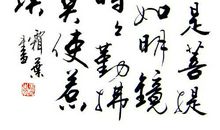 是菩提
如明鏡
時々勤拂
莫使惹
埃
霜葉書